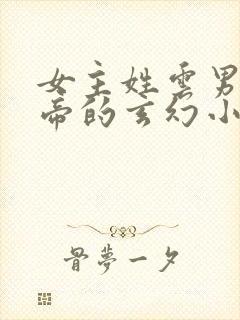 女主姓雲男
帝的玄幻小
骨夢一夕